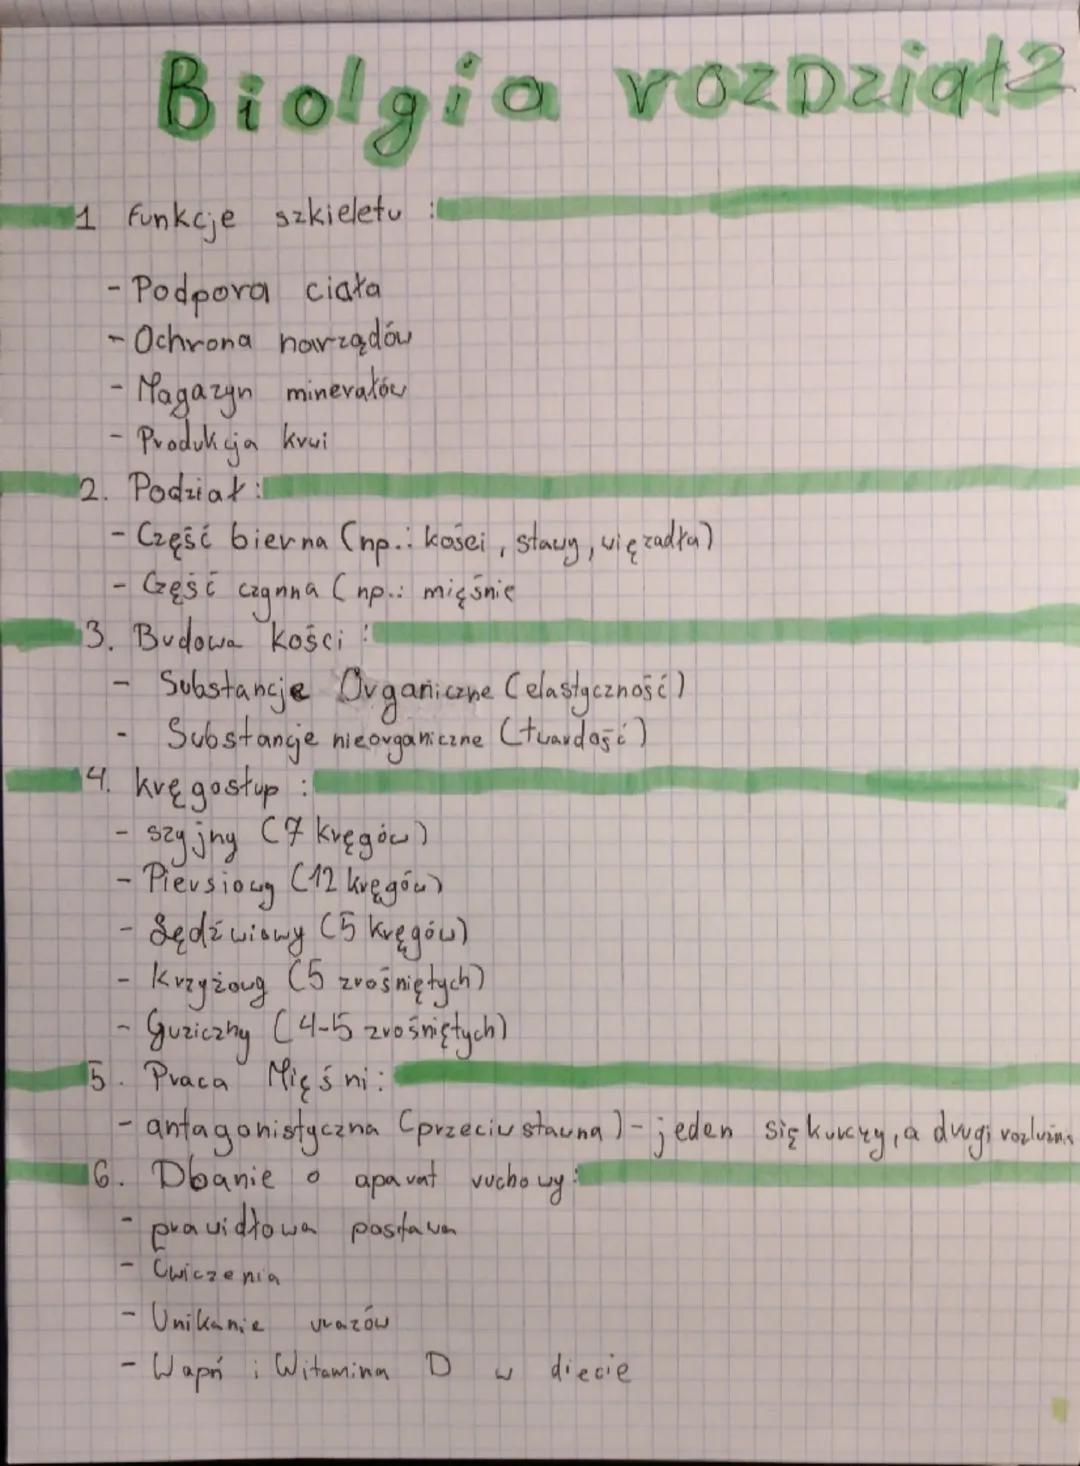 Biolgia rozDział 2
1 funkcje szkieletu :
- Podpora ciała
- Ochrona narządów
- Magazyn minerałów
- Produkcja krwi
2. Podział :
- Część bierna (np.: kości, stawy, więzadła)
- Część czynna (np.: mięśnie
3. Budowa kości :
- Substancje Organiczne (elastyczność)
- Substancje nieorganiczne (twardość)
4. kręgosłup :
- szyjny (7 kręgów)
- Piersiowy (12 kręgów)
- Lędźwiowy (5 kręgów)
- Krzyżowy (5 zrośniętych)
- Guziczny (4-5 zrośniętych)
5. Praca Mięśni :
- antagonistyczna (przeciwstawna) - jeden się kurczy, a drugi rozluźnia
6. Dbanie o aparat ruchowy :
- prawidłowa postawa
- Ćwiczenia
- Unikanie urazów
- Wapń i Witamina D w diecie